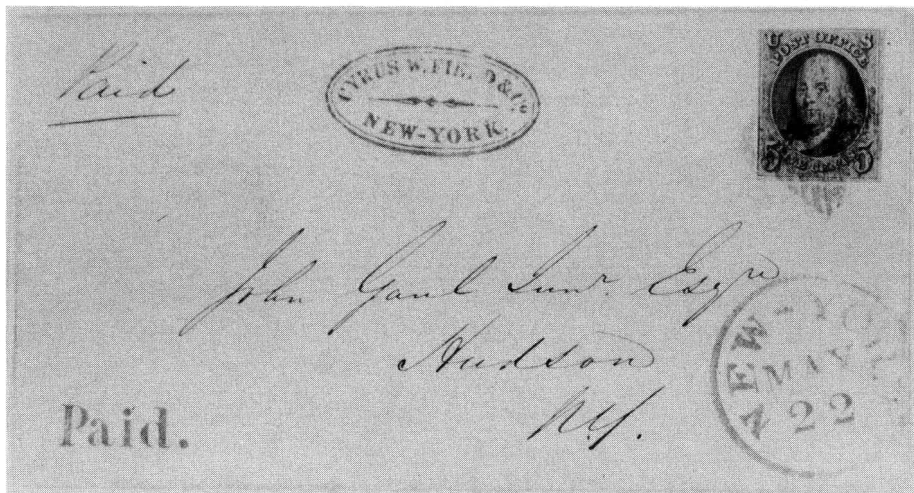 Paid
CYRUS W. FIELD & Co.
NEW-YORK.
POST OFFICE
FIVE CENTS
John Gaul Junr. Esqre
Hudson
N.Y.
Paid.
NEW-YORK
MAY
22